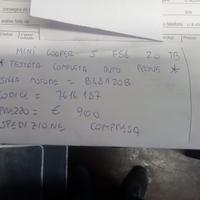 consegna e
MINI COOPER S F56 2.0 TB
* TESTATA COMPLETA AUTO PROVE *
SIGLA MOTORE = B48A20B
CODICE = 7616187
PREZZO = € 900
SPEDIZIONE COMPRESA